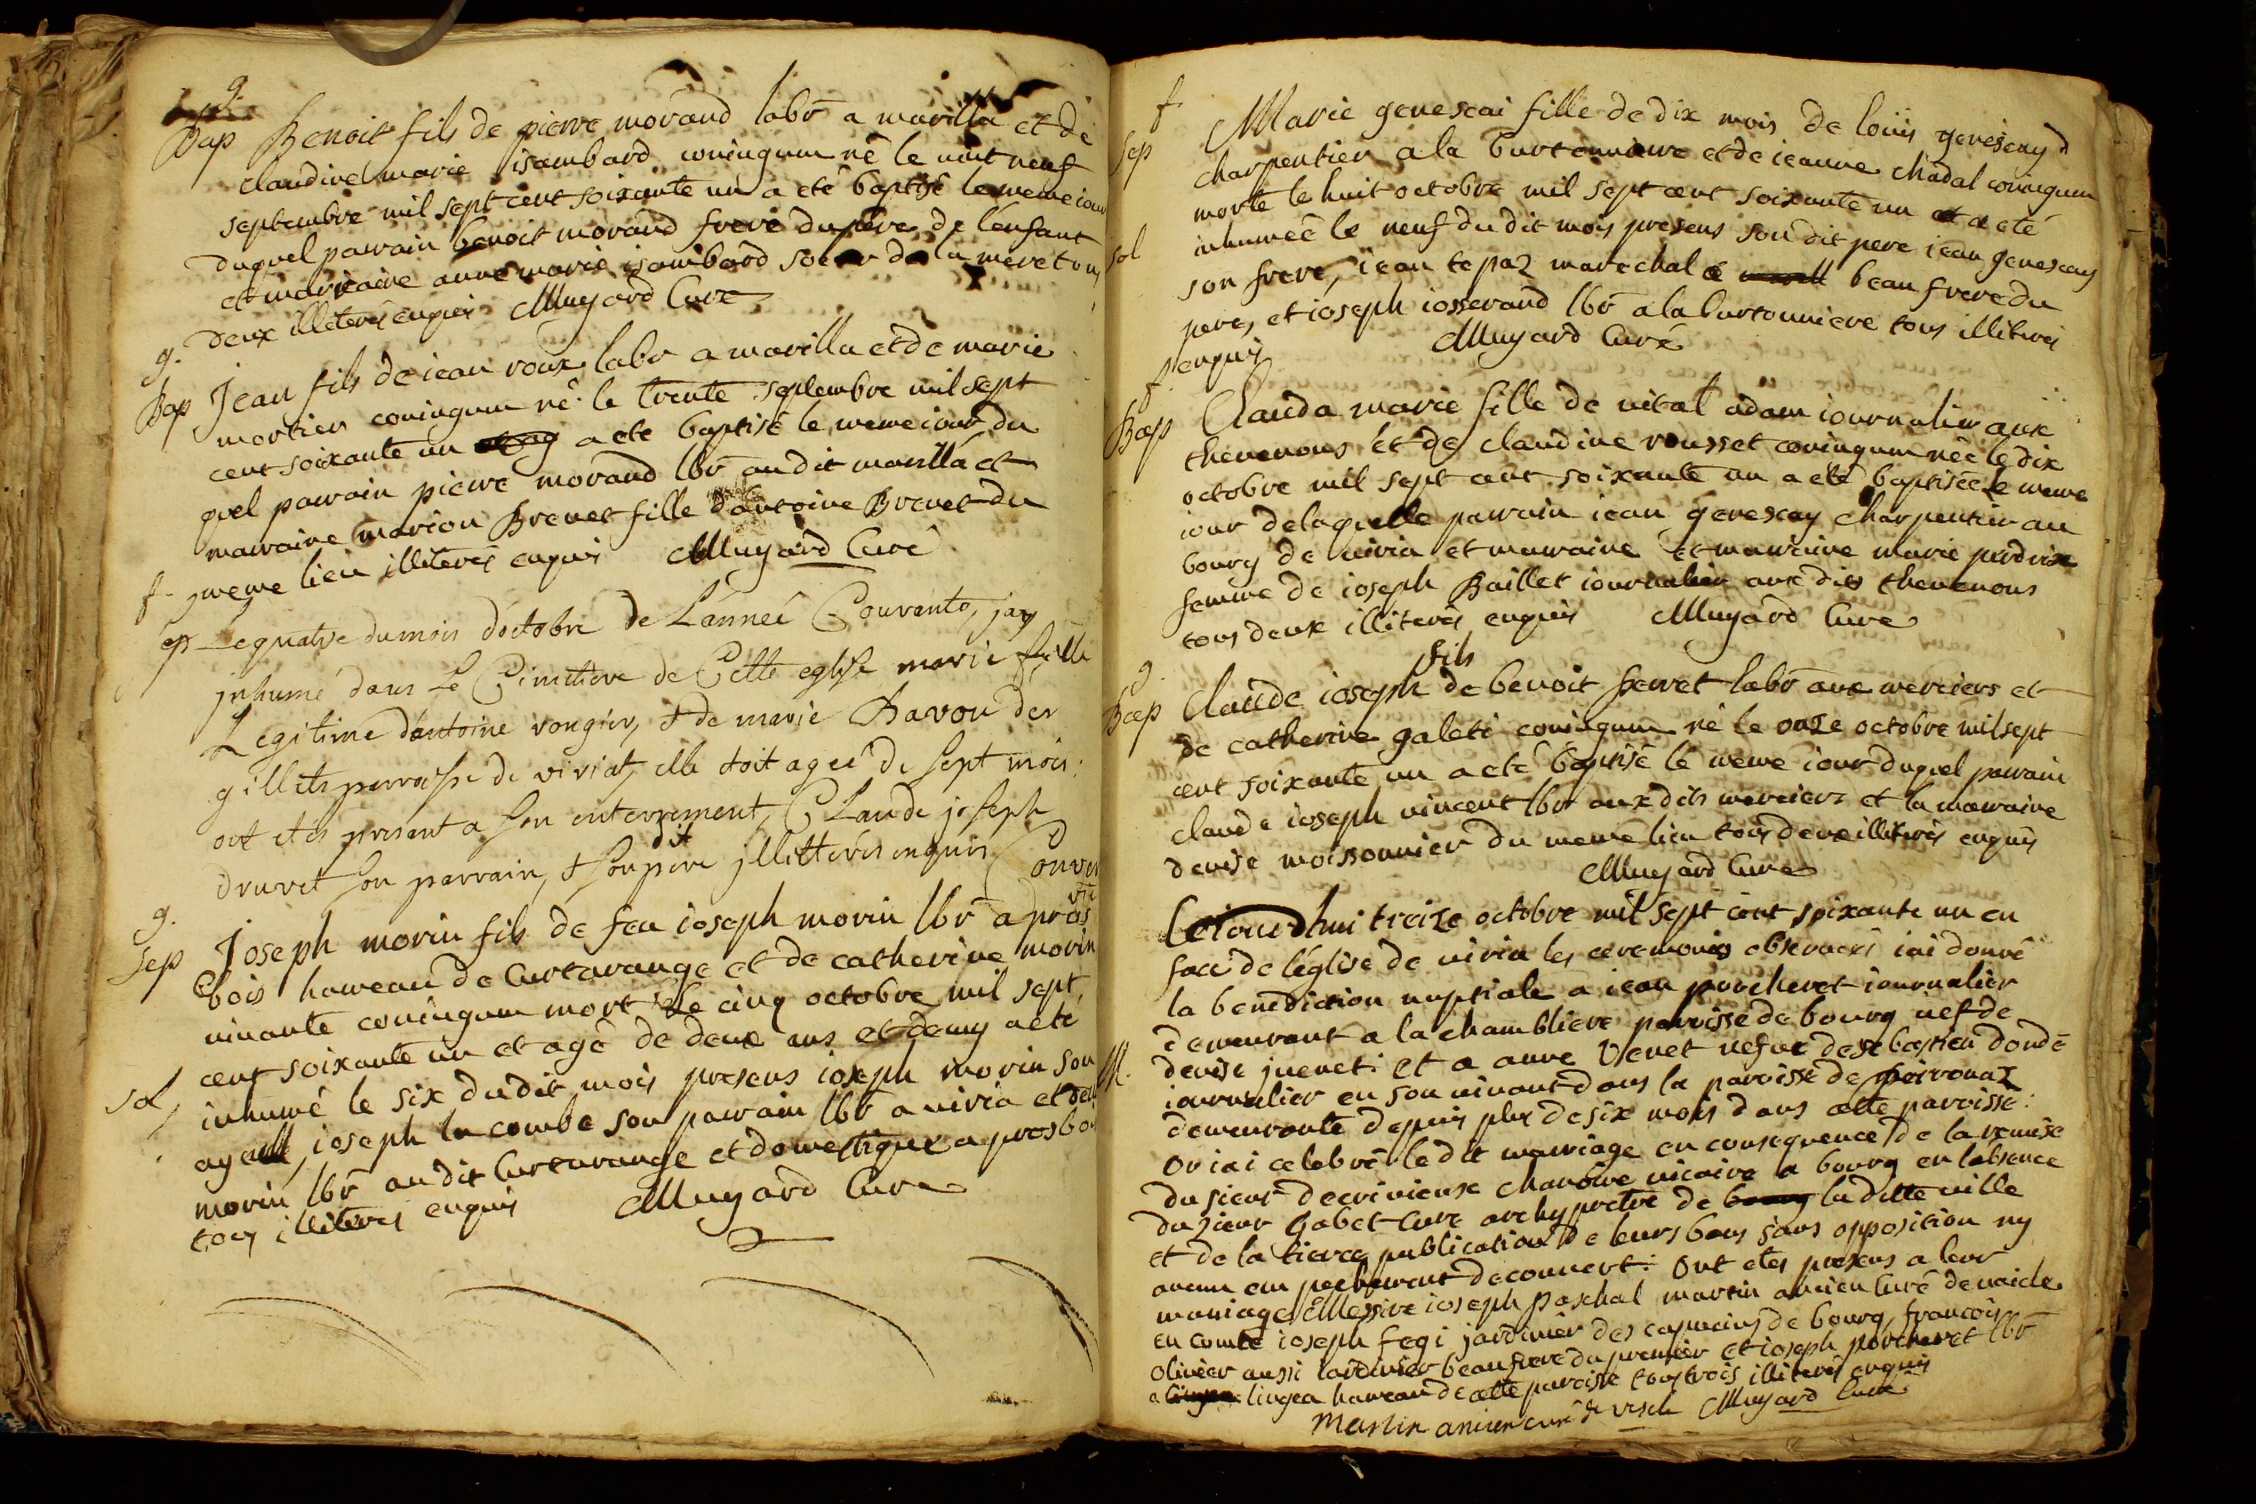 g.
Bap Benoit fils de pierre morand labr a marilla et de
claudine marie isambard coniugum né le uint neuf
septembre mil sept cent soixante un a eté baptisé le meme iour
duquel parrain benoit morand frere du pere de l'enfant
et marraine anne marie isambard soeur de la mere tous
deux illiterés enquis Muyard Curé
g.
Bap Jean fils de iean roux labr a marilla et de marie
mortier coniugum né le trente septembre mil sept
cent soixante un a eté baptisé le meme iour du
quel parrain pierre morand lbr au dit marilla et
marraine marion Brevet fille d'antoine Brevet du
meme lieu illiterés enquis Muyard Curé
f.
ep Le quatre du mois d'octobre de L'année Courante, jay
jnhumé dans Le Cimetiere de Cette eglise marie fille
Legitime d'antoine rongier, & de marie Bavon des
gillets parroisse de viriat, elle etoit agée de sept mois:
ont etés present a son enterrement, Claude joseph
druvet son parrain, & son dit pere jllittérés enquis
g.
Sep Joseph morin fils de feu ioseph morin lbr a pros
bois hameau de Curtarange et de catherine morin
uiuante coniugum mort le cinq octobre mil sept
cent soixante un et agé de deux ans et demy a eté
sol inhumé le six du dit mois presens ioseph morin son
ayeul, ioseph la combe son parrain lbr a uiria et
morin lbr au dit Curtarange et domestique a prosboi
tous illiterés enquis Muyard Cure
f.
Sep Marie genescai fille de dix mois de loüis genescay
charpentier a la Curtonniere et de ieanne chadal coniugum
morte le huit octobre mil sept cent soixante un a eté
sol inhumeé le neuf du dit mois presens son dit pere iean genescay
son frere, iean tepaz marechal a beau frere du
pere, et ioseph iosserand lbr a la Curtonniere tous illiterés
enquis Muyard Curé
f.
Bap Clauda marie fille de uital adam iournalier aux
theuenons et de claudine rousset coniugum neé le dix
octobre mil sept cent soixante un a eté baptiseé le meme
iour de laquelle parrain iean genescay charpentier au
bourg de uiria et marraine et marraine marie perdrix
femme de ioseph Baillet iournalier aux dits theuenons
tous deux illiterés enquis Muyard Cure
g.
fils
Bap Claude ioseph de benoit ferret labr aux merciers et
de catherine galeti coniugum né le onze octobre mil sept
cent soixante un a eté baptisé le meme iour duquel parrain
claude ioseph uincent lbr aux dits merciers et la marraine
denise moissonnier du meme lieu tous deux illiterés enquis
Muyard Cure
Ceiourdhui treize octobre mil sept cent soixante un en
face de l'église de uiria les ceremonies obserueés iai donné
la benediction nuptiale a iean porcheret iournalier
demeurant a la chambliere paroisse de bourg uef de
M. denise jueneti et a anne Venet uefue de sebastien dondé
iournalier en son uiuant dans la paroisse de peirouaz
demeurante depuis plus de six mois dans cette paroisse:
or iai celebré le dit mariage en consequence de la remise
du sieur decrivieux chanoine uicaire a bourg en l'absence
du sieur Gabet Cure archyprêtre de la ditte uille
et de la tierce publication de leurs bans sans opposition ny
aucun empechement decouuert. Ont etes presens a leur
mariage Messire ioseph paschal martin ancien Curé de uaicle
en comte ioseph fegi jardinier des capucins de bourg, francois
Oliuier aussi iardinier beau frere du premier et ioseph porcheret lbr
a lingea hameau de cette paroisse tous trois illiterés enquis
Martin ancien curé de vescle Muyard Curé